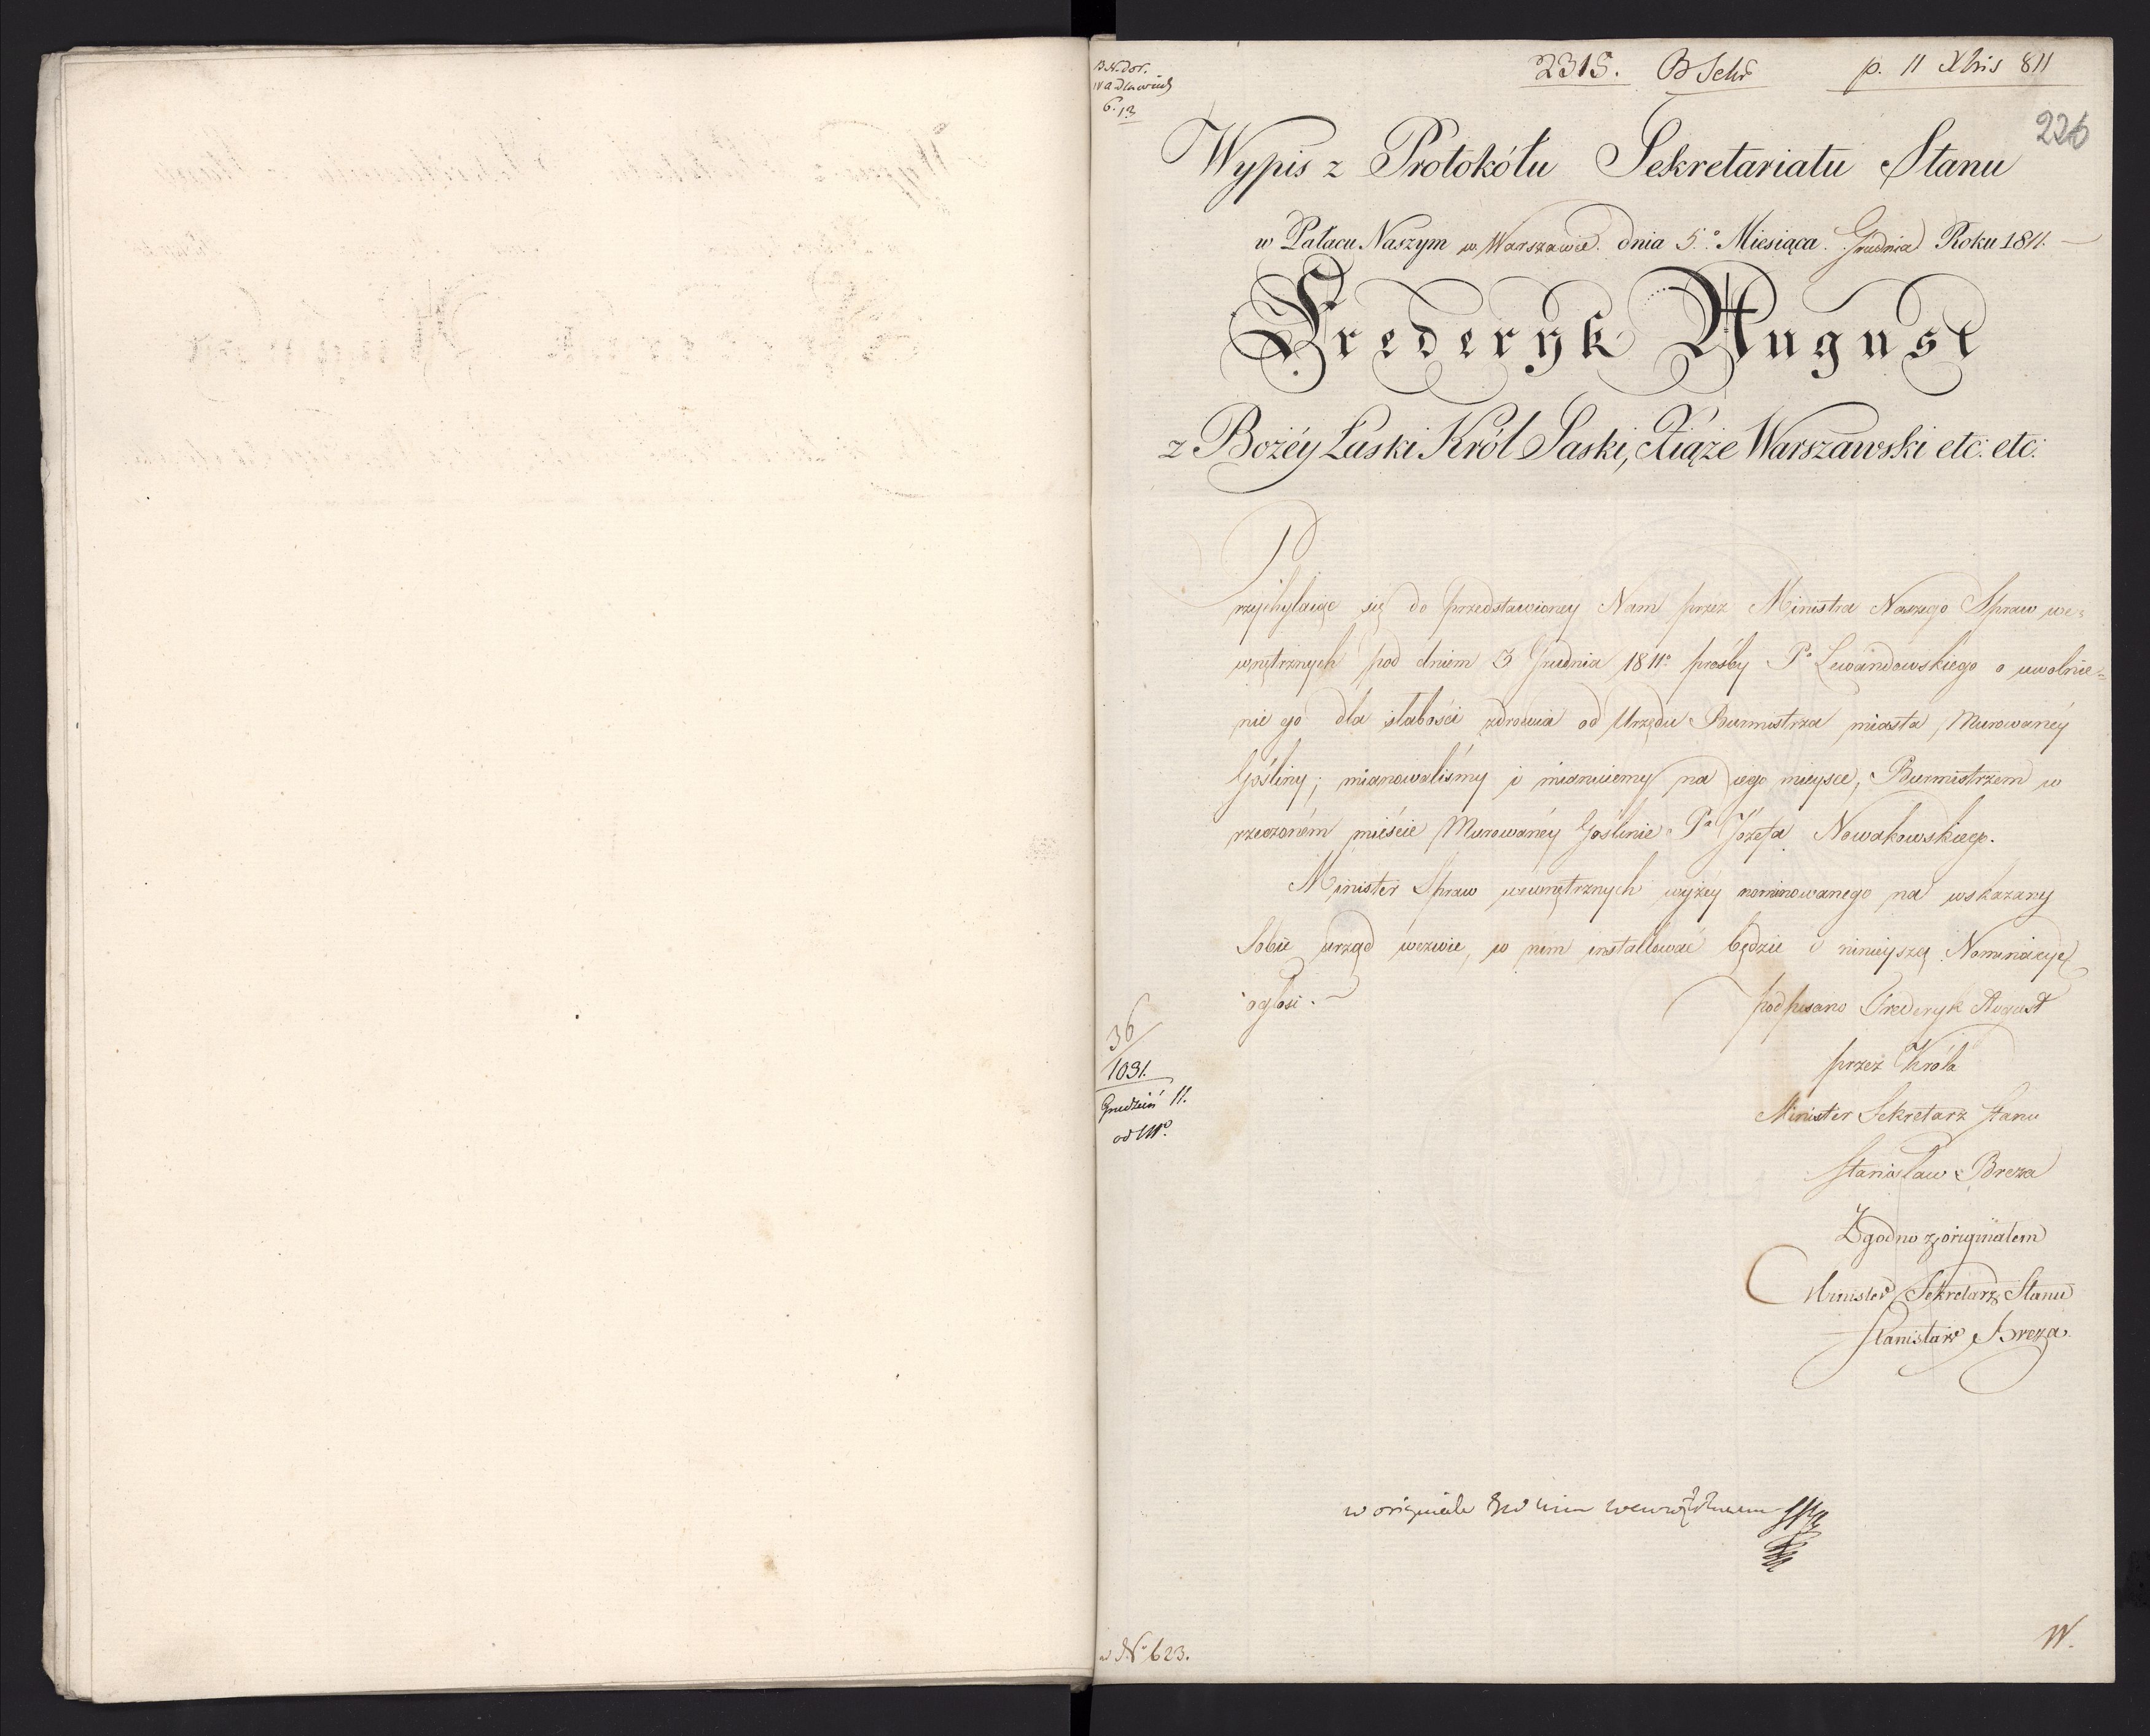 2315. B Sekr p. 11 Xbris 811
226
6. 13
Wypis z Protokółu Sekretariatu Stanu
w Pałacu Naszym w Warszawie. dnia 5.° Miesiąca Grudnia Roku 1811.
Fryderyk August
z Bożéy Łaski Król Saski, Xiąże Warszawski etc: etc:
Przychylaiąc się do przedstawioney Nam przez Ministra Naszego Spraw we=
wnętrznych pod dniem 3 Grudnia 1811° prośby P° Lewandowskiego o uwolnie=
nie go dla słabości zdrowia od Urzędu Burmistrza miasta Murowanéy
Gośliny; mianowaliśmy i mianuiemy na iego mieysce, Burmistrzem w
rzeczoném mieście Murowanéy Goślinie P° Józefa Nowakowskiego.
Minister Spraw wewnętrznych wyżéy nominowanego na wskazany
Sobie urząd wezwie, w nim installować będzie i ninieyszą Nominacyę
ogłosi.
podpisano Frederyk August
przez Króla
Minister Sekretarz Stanu
Stanisław Breza
Zgodno z originałem
Minister Sekretarz Stanu
Stanisław Breza
36
1031.
Grudzień 11.
w originale
w N° 623.
W.